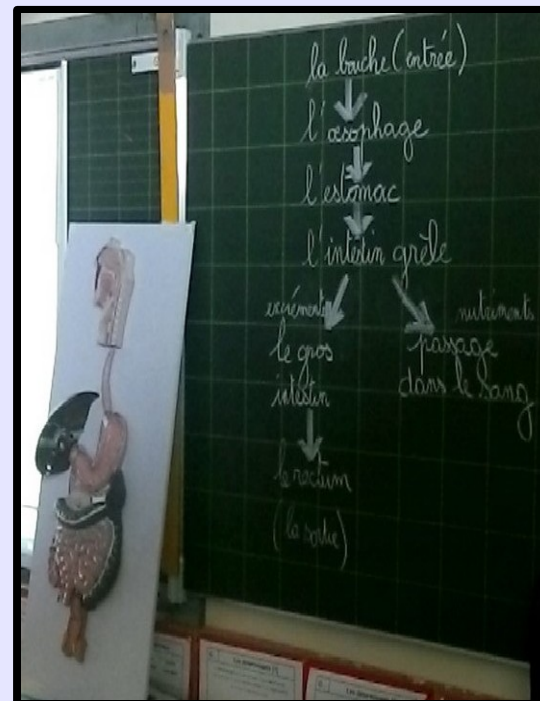 la bouche (entrée)
l'œsophage
l'estomac
l'intestin grêle
excréments
nutriments
le gros
intestin
passage
dans le sang
le rectum
(la sortie)